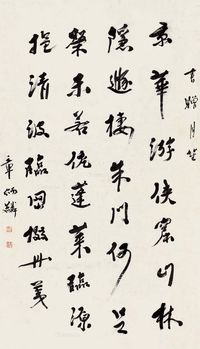 書贈月笙
京華游俠窟山林
隱遯棲朱門何足
榮未若侂蓬萊臨源
挹清波臨岡掇丹荑
章炳麟